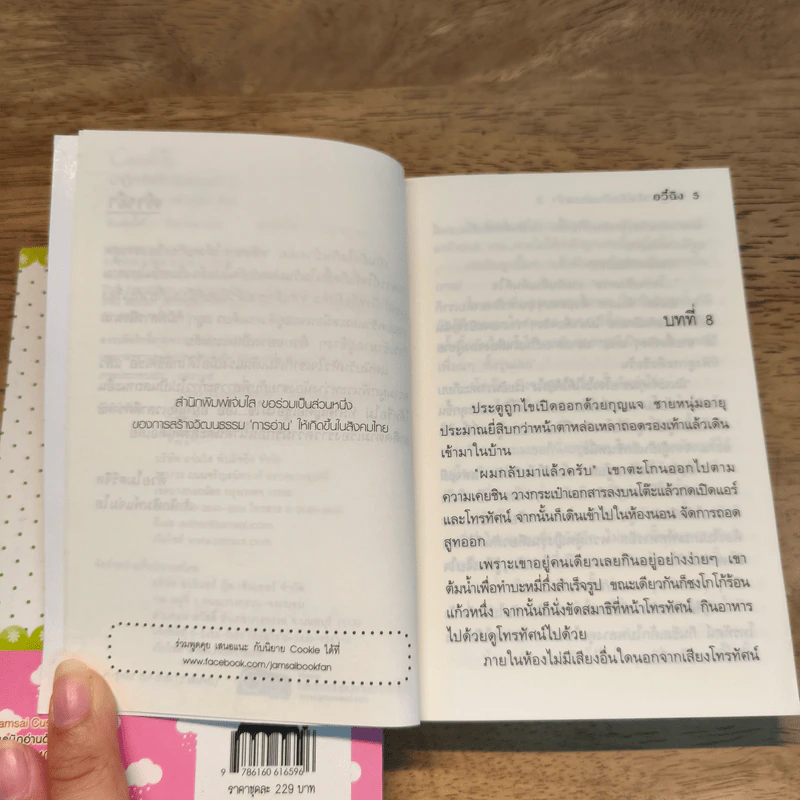 สำนักพิมพ์แจ่มใส ขอร่วมเป็นส่วนหนึ่ง
ของการสร้างวัฒนธรรม 'การอ่าน' ให้เกิดขึ้นในสังคมไทย
ร่วมพูดคุย เสนอแนะ กับนิยาย Cookie ได้ที่
www.facebook.com/jamsaibookfan
อวี๋ฉิง 5
บทที่ 8
ประตูถูกไขเปิดออกด้วยกุญแจ ชายหนุ่มอายุ
ประมาณยี่สิบกว่าหน้าตาหล่อเหลาถอดรองเท้าแล้วเดิน
เข้ามาในบ้าน
"ผมกลับมาแล้วครับ" เขาตะโกนออกไปตาม
ความเคยชิน วางกระเป๋าเอกสารลงบนโต๊ะแล้วกดเปิดแอร์
และโทรทัศน์ จากนั้นก็เดินเข้าไปในห้องนอน จัดการถอด
สูทออก
เพราะเขาอยู่คนเดียวเลยกินอยู่อย่างง่ายๆ เขา
ต้มน้ำเพื่อทำบะหมี่กึ่งสำเร็จรูป ขณะเดียวกันก็ชงโกโก้ร้อน
แก้วหนึ่ง จากนั้นก็นั่งขัดสมาธิที่หน้าโทรทัศน์ กินอาหาร
ไปด้วยดูโทรทัศน์ไปด้วย
ภายในห้องไม่มีเสียงอื่นใดนอกจากเสียงโทรทัศน์
9 786160 616596
ราคาชุดละ 229 บาท